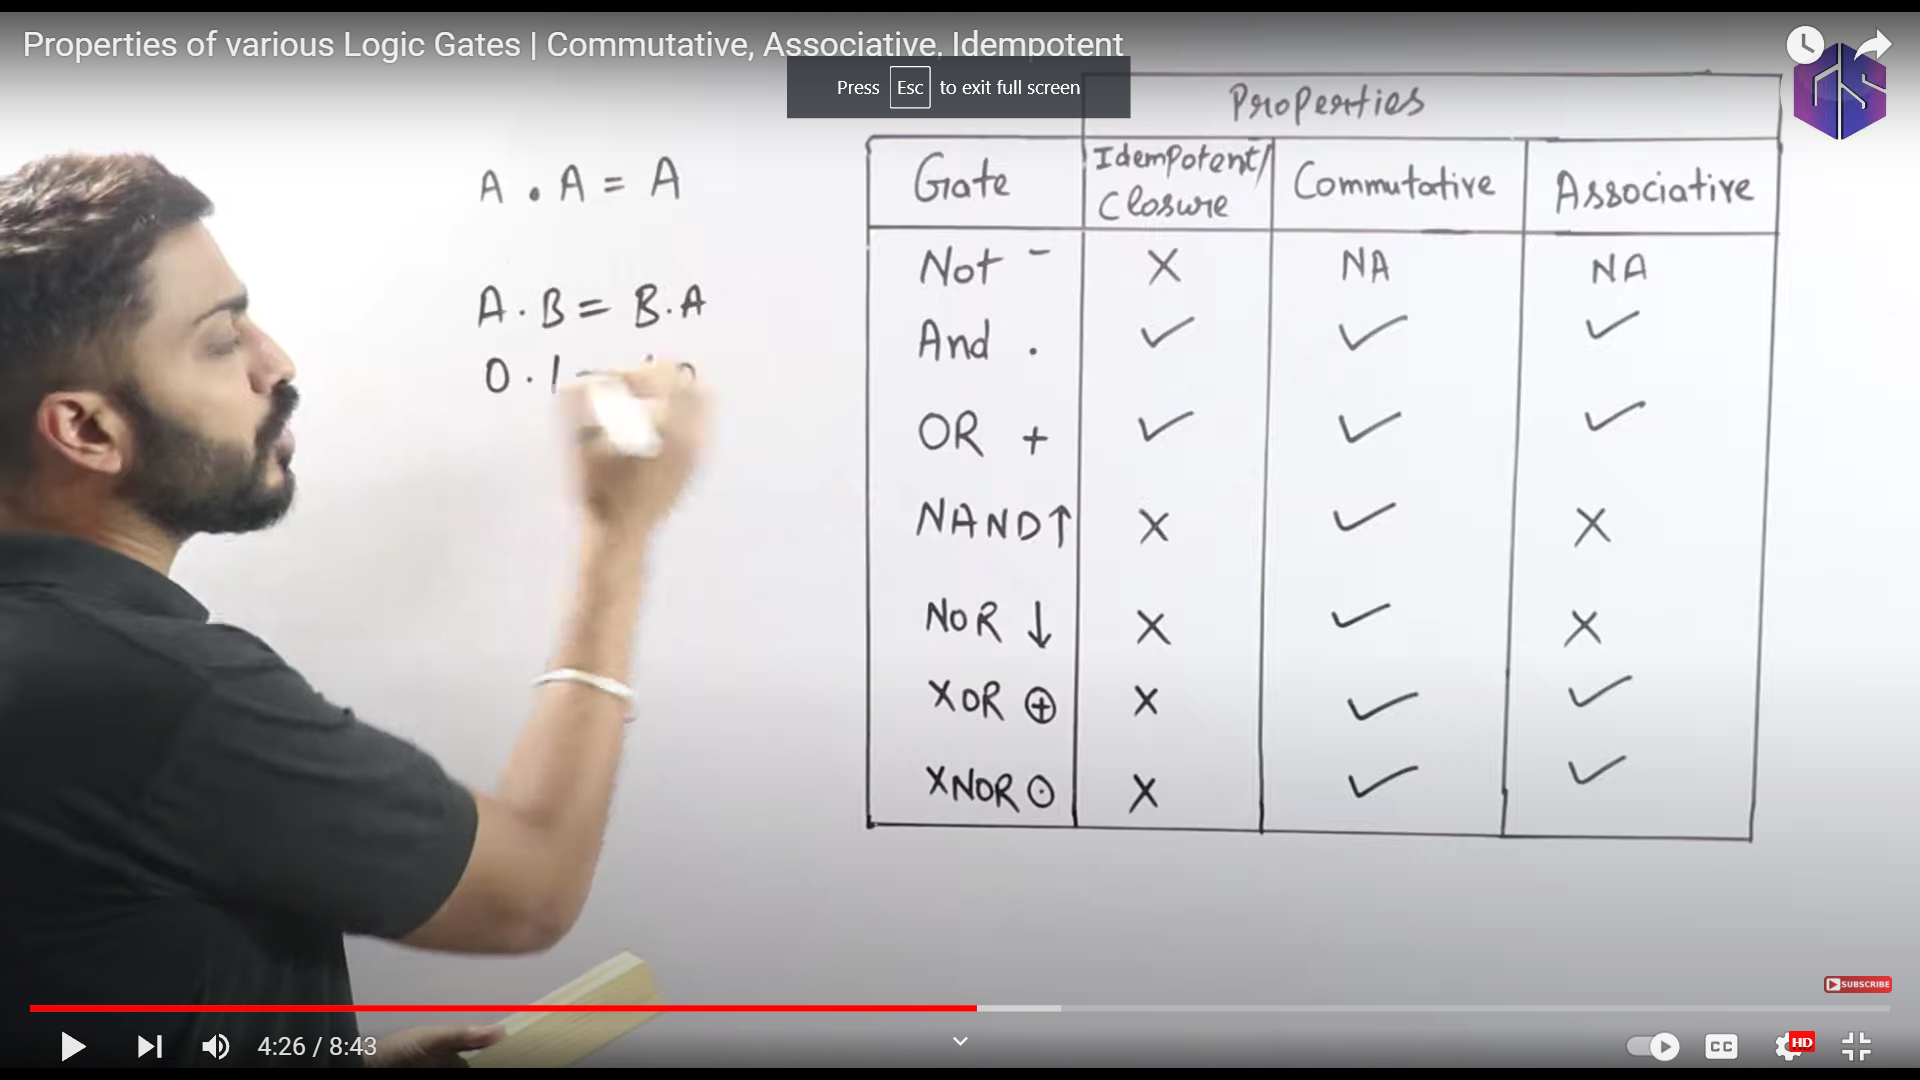 Properties of various Logic Gates | Commutative, Associative, Idempotent
Press Esc to exit full screen
Properties
Gate Idempotent/ Closure Commutative Associative
Not - X NA NA
And . ✓ ✓ ✓
OR + ✓ ✓ ✓
NAND ↑ X ✓ X
NOR ↓ X ✓ X
XOR ⊕ X ✓ ✓
XNOR ⊙ X ✓ ✓
A . A = A
A . B = B . A
0 . 1
SUBSCRIBE
4:26 / 8:43
CC
HD